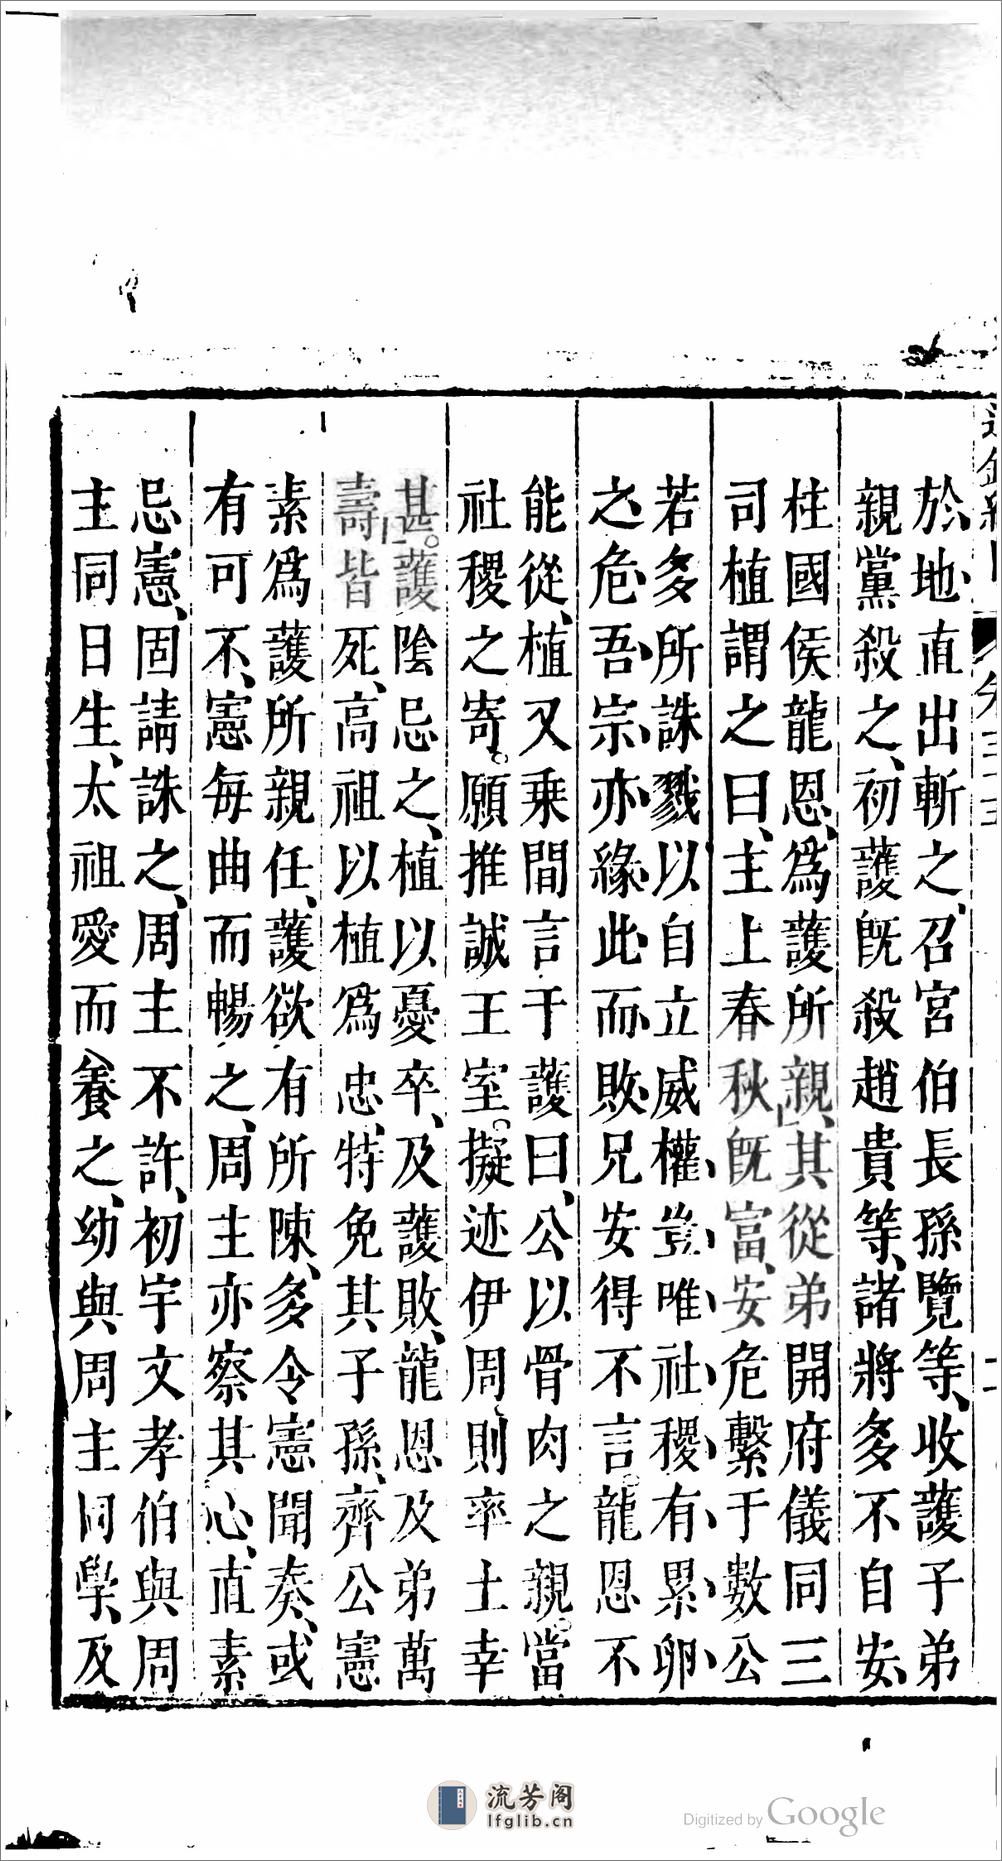 於地直出斬之召宮伯長孫覽等收護子弟
親黨殺之初護旣殺趙貴等諸將多不自安
柱國侯龍恩爲護所親其從弟開府儀同三
司植謂之曰主上春秋旣富安危繫于數公
若多所誅戮以自立威權豈唯社稷有累卵
之危吾宗亦緣此而敗兄安得不言龍恩不
能從植又乗間言于護曰公以骨肉之親當
社稷之寄願推誠王室擬迹伊周則率土幸
甚護陰忌之植以憂卒及護敗龍恩及弟萬
壽皆死高祖以植爲忠特免其子孫齊公憲
素爲護所親任護欲有所陳多令憲聞奏或
有可不憲每曲而暢之周主亦察其心直素
忌憲固請誅之周主不許初宇文孝伯與周
主同日生太祖愛而養之幼與周主同學及
流芳阁
lfglib.cn
Digitized by Google